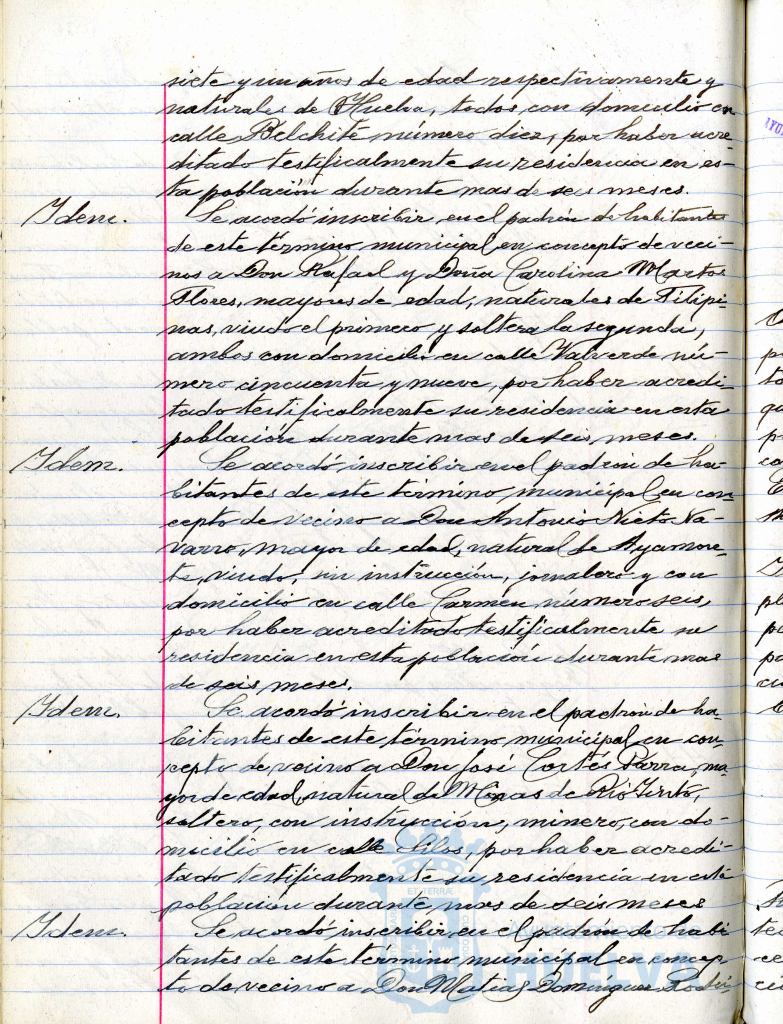 siete y un años de edad respectivamente y
naturales de Huelva, todos con domicilio en
calle Belchite número diez, por haber acre-
ditado testificalmente su residencia en es-
ta población durante mas de seis meses.
Idem. Se acordó inscribir en el padrón de habitantes
de este término municipal en concepto de veci-
nos a Don Rafael y Doña Carolina Martos
Flores, mayores de edad, naturales de Filipi-
nas, viudo el primero y soltera la segunda,
ambos con domicilio en calle Valverde nú-
mero cincuenta y nueve, por haber acredi-
tado testificalmente su residencia en esta
población durante mas de seis meses.
Idem. Se acordó inscribir en el padrón de ha-
bitantes de este término municipal en con-
cepto de vecino a Don Antonio Nieto Na-
varro, mayor de edad, natural de Ayamon-
te, viudo, sin instrucción, jornalero y con
domicilio en calle Carmen número seis,
por haber acreditado testificalmente su
residencia en esta población durante mas
de seis meses.
Idem. Se acordó inscribir en el padrón de ha-
bitantes de este término municipal en con-
cepto de vecino a Don José Cortés Parra, ma-
yor de edad, natural de Minas de Río Tinto,
soltero, con instrucción, minero, con do-
micilio en calle Silos, por haber acredi-
tado testificalmente su residencia en esta
población durante mas de seis meses
Idem. Se acordó inscribir en el padrón de habi
tantes de este término municipal en concep-
to de vecino a Don Matias Domínguez Rodrí-
HUELVA